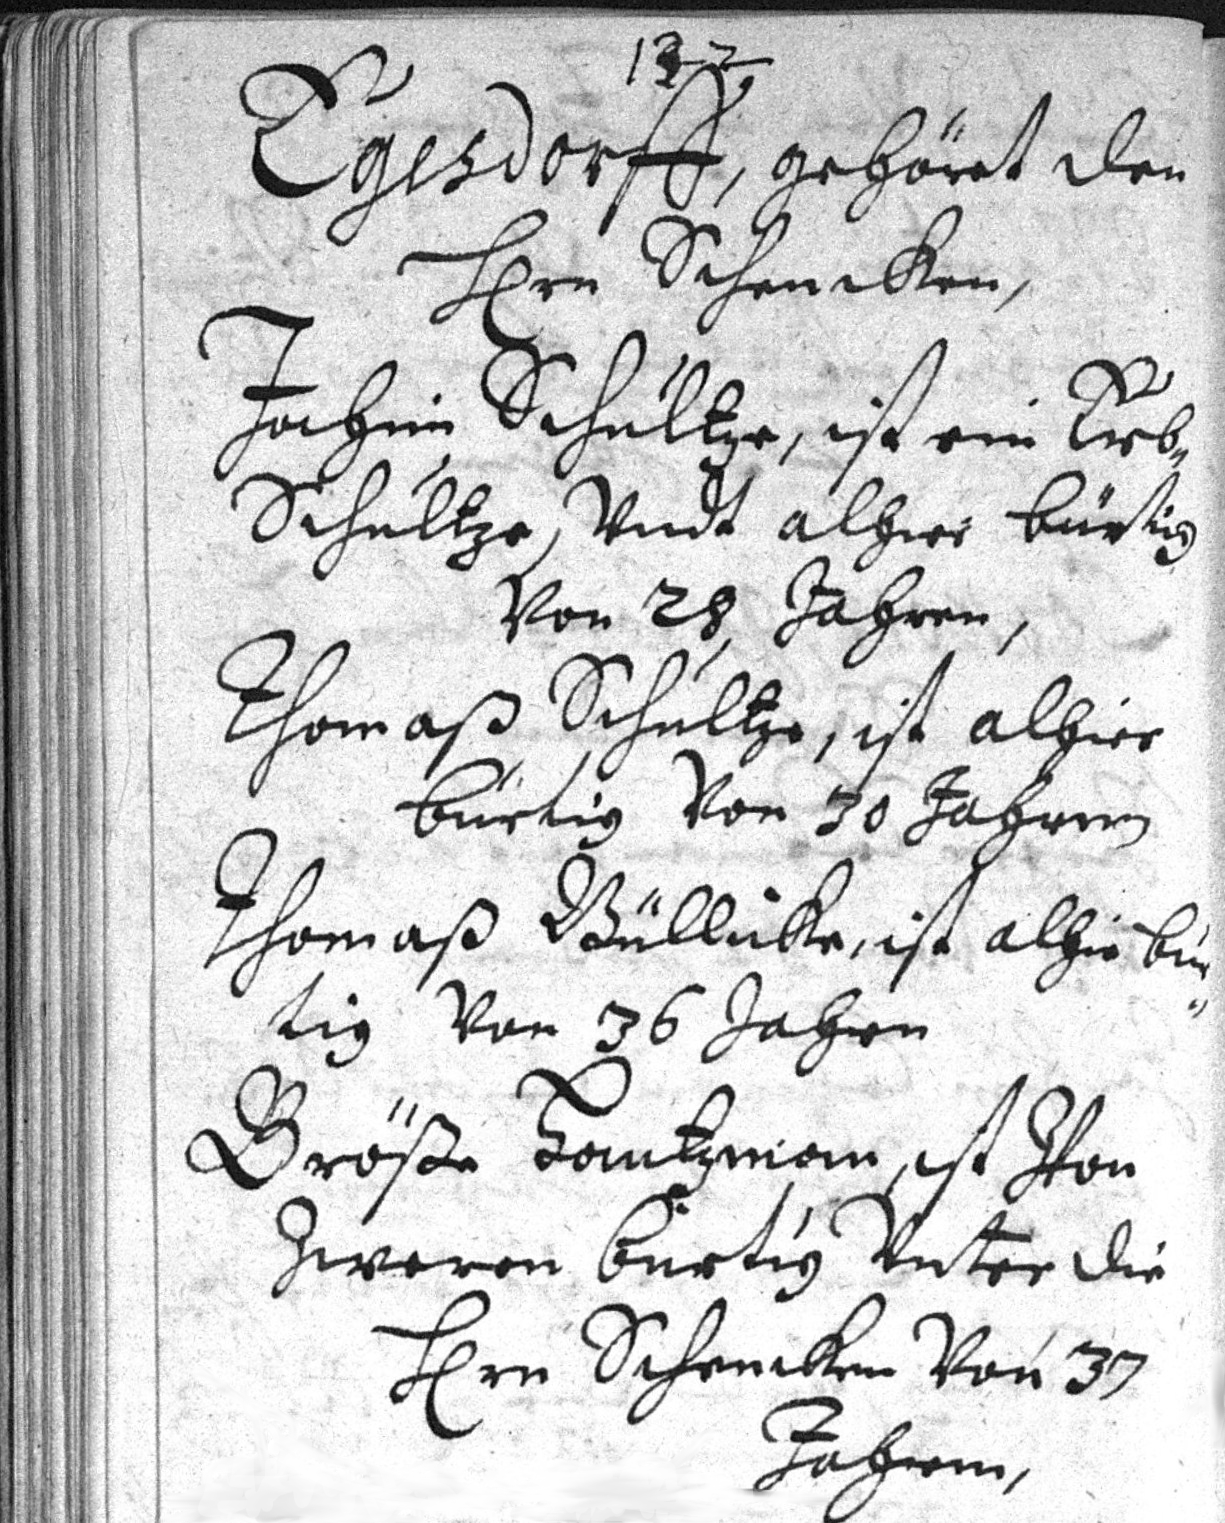 Egelsdorff, gehöret den
Hern Schencken,
Jochim Schultze, ist ein Erb=
Schultze, Vndt alhier bürtig
Von 28 Jahren,
Thomaß Schultze, ist alhier
bürtig Von 30 Jahren
Thomaß Büllicke, ist alhie bür=
tig Von 36 Jahren
ist Von
bürtig Vnter die
Hern Schencken Von 37
Jahren,